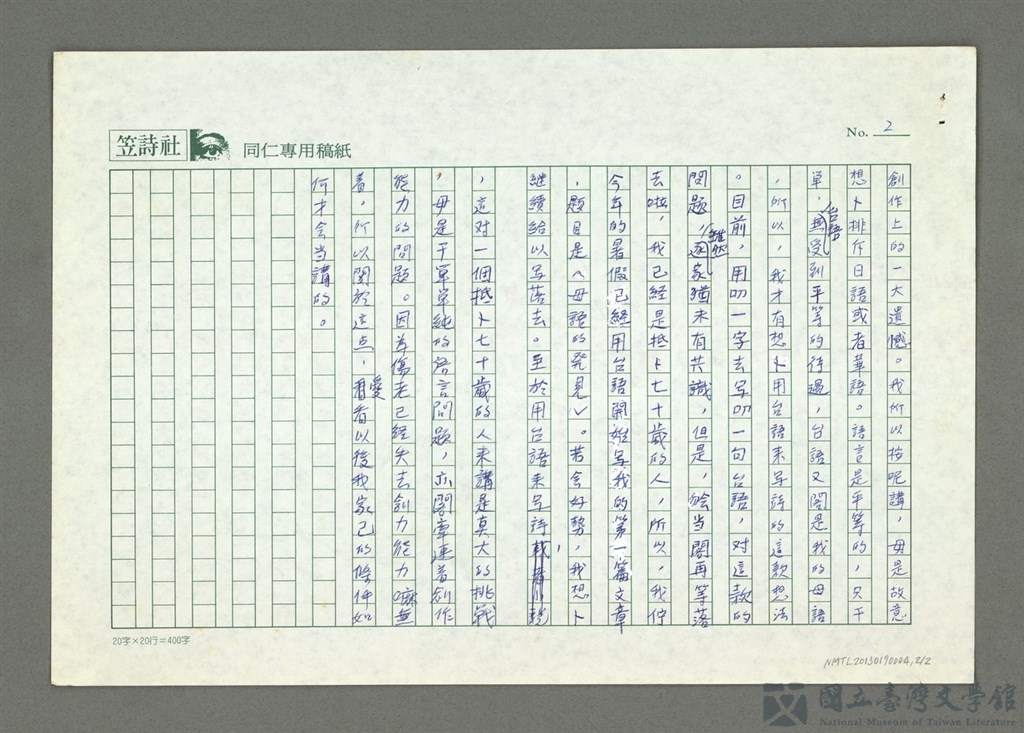 No. 2
笠詩社 同仁專用稿紙
創作上的一大遺憾。我所以按呢講,毋是故意
想卜排斥日語或者華語。語言是平等的,只干
單,台語無受到平等的待遇,台語又閣是我的母語
,所以,我才有想卜用台語來写詩的這款想法
。目前,用叨一字去写叨一句台語,対這款的
問題,雖然逐家猶未有共識,但是,袂當閣再等落
去啦,我已經是抵卜七十歲的人,所以,我佇
今年的暑假已經用台語開始写我的第一篇文章
,題目是〈母語的発見〉。若會好勢,我想卜
継續給以写落去。至於用台語來写詩,
,這対一個抵卜七十歲的人來講是真大的挑戦
,毋是干單單純的語言問題,亦閣牽連着創作
能力的問題。因為傷老已經失去創力能力嘛無
着,所以関於這点,愛看看以後我家己的條件如
何才会当講的。
20字×20行=400字
NMTL20130190004,2/2
國立臺灣文學館
National Museum of Taiwan Literature